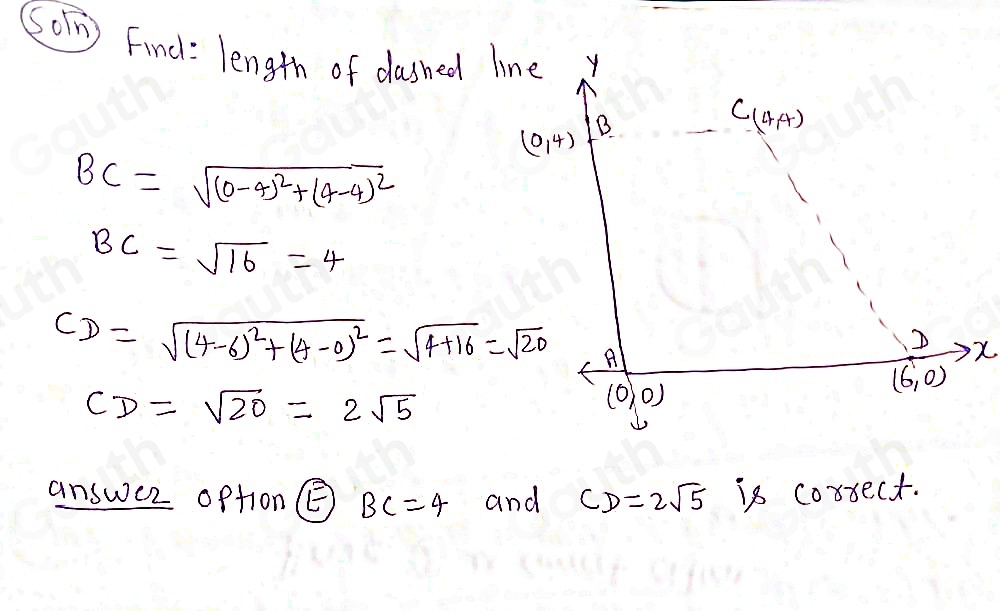 Soln
Find: length of dashed line
BC = √(0-4)²+(4-4)²
BC = √16 = 4
CD = √(4-6)²+(4-0)² = √4+16 = √20
CD = √20 = 2√5
Y
(0,4) B
C(4,4)
A
(0,0)
D
(6,0)
x
answer option (E) BC=4 and CD=2√5 is correct.
Gauth